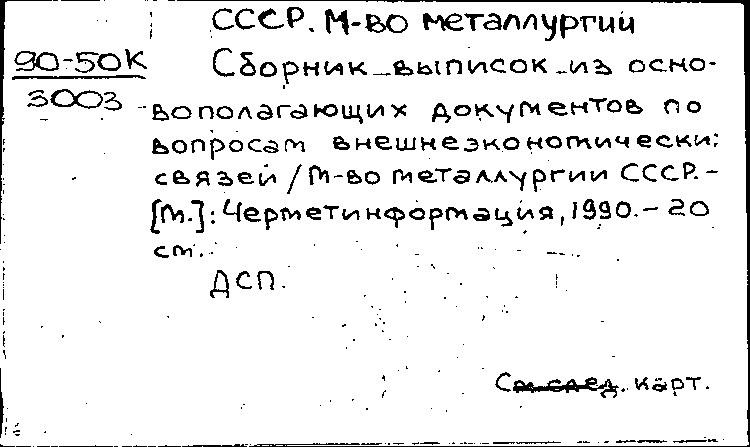 СССР. М-во металлургии
90-50К
3003
Сборник выписок из осно-
вополагающих документов по
вопросам внешнеэкономически:
связей / М-во металлургии СССР. -
[М.]: Черметинформация, 1990. - 20
см..
ДСП.
См след. карт.